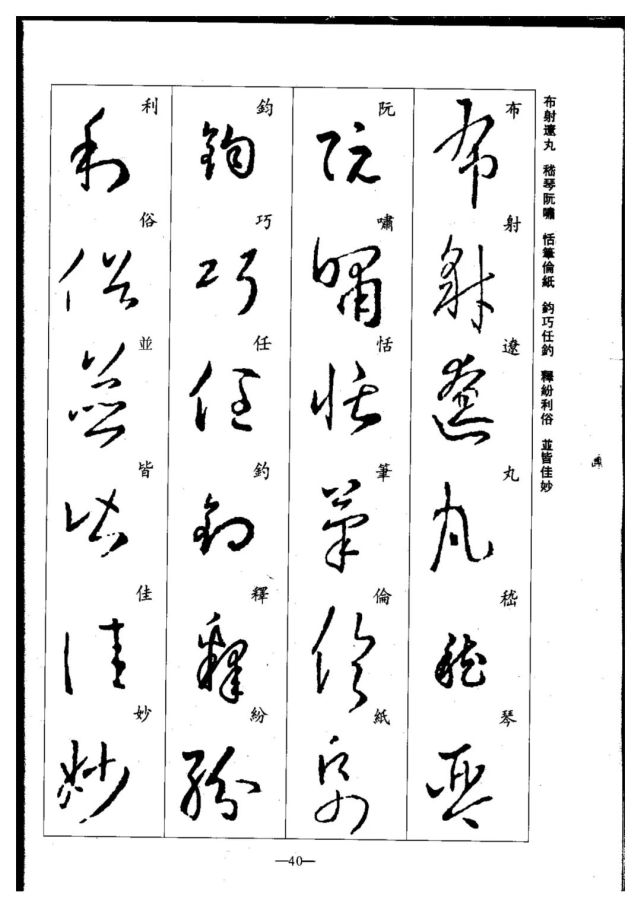 布射遼丸　嵇琴阮嘯　恬筆倫紙　鈞巧任釣　釋紛利俗　並皆佳妙
布射遼丸嵇琴
阮嘯恬筆倫紙
鈞巧任釣釋紛
利俗並皆佳妙
—40—